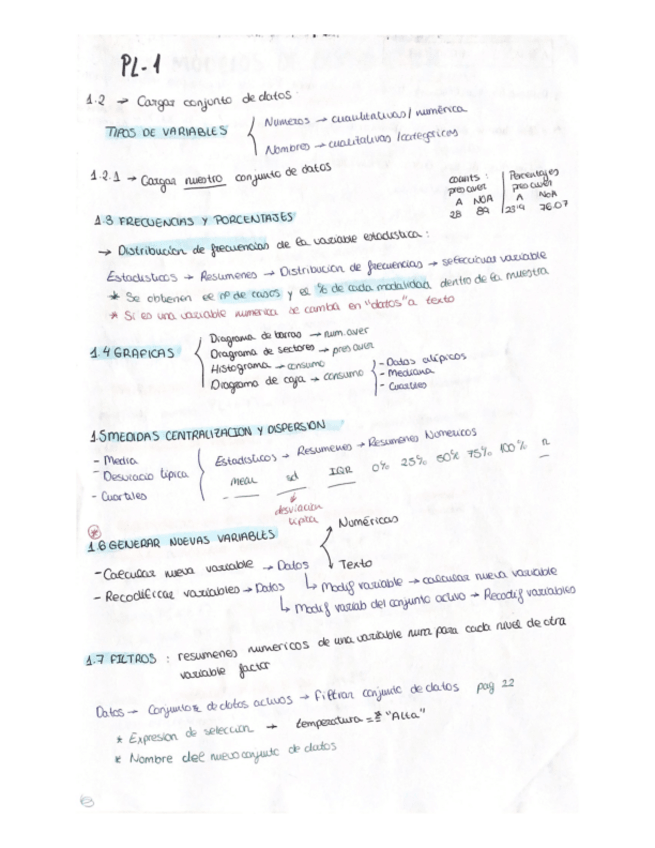 PL-1
1.2 → Cargar conjunto de datos.
TIPOS DE VARIABLES
Numeros → cuantitativas / numérica
Nombres → cualitativas / categoricas
1.2.1 → Cargar nuestro conjunto de datos
counts : Porcentajes
pres aver pres aver
A NOA A NoA
28 89 23'9 76.07
1.3 FRECUENCIAS Y PORCENTAJES
→ Distribución de frecuencias de la variable estadística :
Estadísticos → Resumenes → Distribución de frecuencias → seleccionas variable
* Se obtienen el nº de casos y el % de cada modalidad dentro de la muestra
* Si es una variable numerica se cambia en "datos" a texto
1.4 GRAFICAS
Diagrama de barras → num. aver
Diagrama de sectores → pres aver
Histograma → consumo
Diagrama de caja → consumo
- Datos atípicos
- Mediana
- Cuartiles
1.5 MEDIDAS CENTRALIZACION Y DISPERSION
- Media
- Desviacio típica
- Cuartiles
Estadísticos → Resumenes → Resumenes Numericos
mean sd IQR 0% 25% 50% 75% 100% n
desviación típica
1.6 GENERAR NUEVAS VARIABLES
Numéricas
Texto
- Calcular nueva variable → Datos
↳ Modif variable → calcular nueva variable
- Recodificar variables → Datos
↳ Modif variab del conjunto activo → Recodif variables
1.7 FILTROS : resumenes numericos de una variable num para cada nivel de otra
variable factor
Datos → Conjuntos de datos activos → Filtrar conjunto de datos pag 22
* Expresion de selección → temperatura == "Alta"
* Nombre del nuevo conjunto de datos